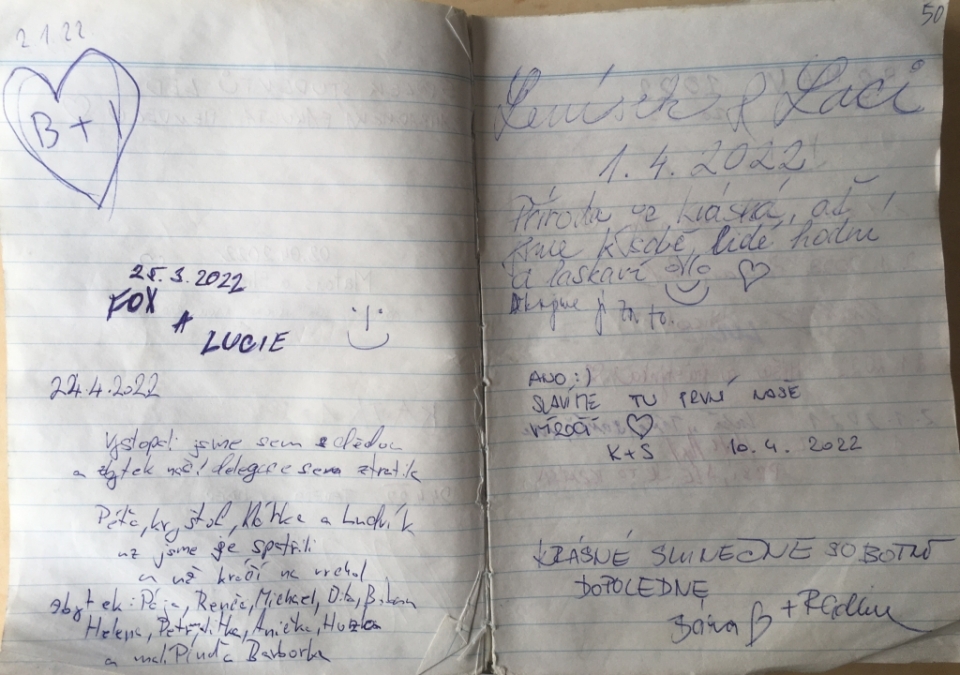 2.1.22
B +
25.3.2022
FOX
A
LUCIE
22.4.2022
Vystopali jsme sem s dědou
a zbytek naší delegace se nám ztratil
Péťa, Kryštof, Klárka a Ludvík
už jsme je spatřili
a už kráčí na vrchol
zbytek: Pája, Renča, Michael, Dita,
Helena, Petr, Jitka, Anička,
a mal. Barborka
50
Leníšek & Laci
1.4.2022
Příroda je krásná, ať
jsme k sobě, lidé hodní
a laskaví
Děkujme jí za to.
ANO :)
SLAVÍME TU PRVNÍ NAŠE
VÝROČÍ
K+S 10.4.2022
KRÁSNÉ SLUNEČNÉ SOBOTNÍ
DOPOLEDNE
Bára +